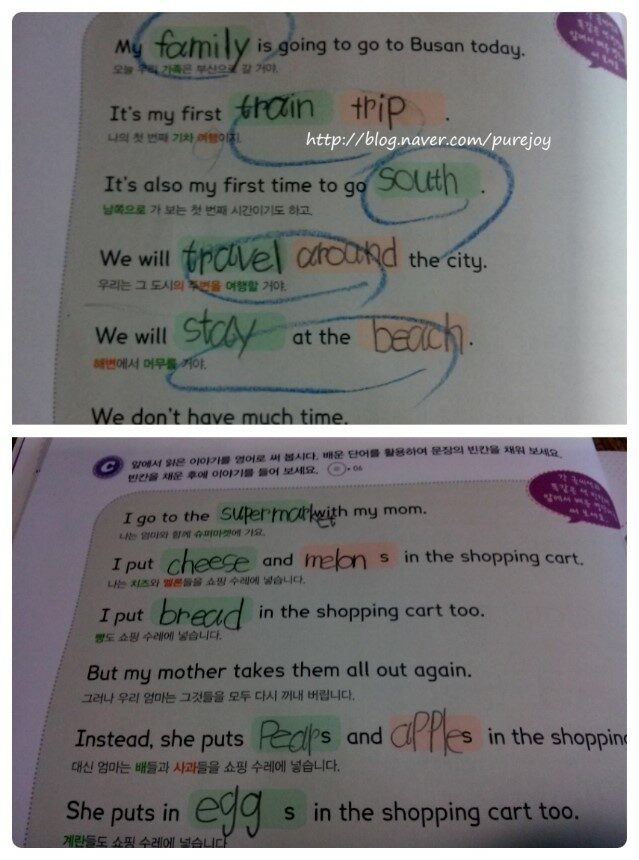 My family is going to go to Busan today.
오늘 우리 가족은 부산으로 갈 거야.
It's my first train trip .
나의 첫 번째 기차 여행이지.
http://blog.naver.com/purejoy
It's also my first time to go south .
남쪽으로 가 보는 첫 번째 시간이기도 하고.
We will travel around the city.
우리는 그 도시의 주변을 여행할 거야.
We will stay at the beach .
해변에서 머무를 거야.
We don't have much time.
C 앞에서 읽은 이야기를 영어로 써 봅시다. 배운 단어를 활용하여 문장의 빈칸을 채워 보세요.
빈칸을 채운 후에 이야기를 들어 보세요. 06
I go to the supermarket with my mom.
나는 엄마와 함께 슈퍼마켓에 가요.
I put cheese and melon s in the shopping cart.
나는 치즈와 멜론들을 쇼핑 수레에 넣습니다.
I put bread in the shopping cart too.
빵도 쇼핑 수레에 넣습니다.
But my mother takes them all out again.
그러나 우리 엄마는 그것들을 모두 다시 꺼내 버립니다.
Instead, she puts Pears and apples in the shoppin
대신 엄마는 배들과 사과들을 쇼핑 수레에 넣습니다.
She puts in egg s in the shopping cart too.
계란들도 쇼핑 수레에 넣습니다